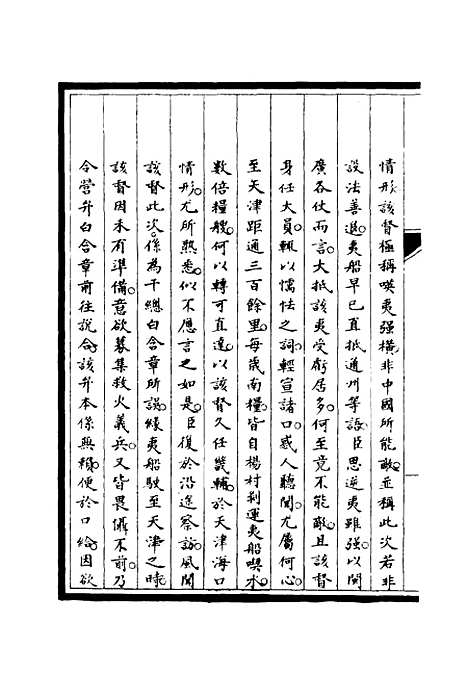 情形該督極稱𠸄夷强横非中國所能敵並稱此次若非
設法善退夷船早已直抵通州等語臣思逆夷雖强以閩
廣各仗而言大抵該夷受虧居多何至竟不能敵且該督
身任大員輒以懦怯之詞輕宣諸口惑人聽聞尤屬何心
至天津距通三百餘里每歲南糧皆自楊村剥運夷船喫水
數倍糧艘何以轉可直達以該督久任畿輔於天津海口
情形尤所熟悉似不應言之如是臣復於沿途察訪風聞
該督此次係為千總白含章所誤緣夷船駛至天津之時
該督因未有準備意欲募集救火義兵又皆畏懾不前乃
令營弁白含章前往說合該弁本係無賴便於口給因欲